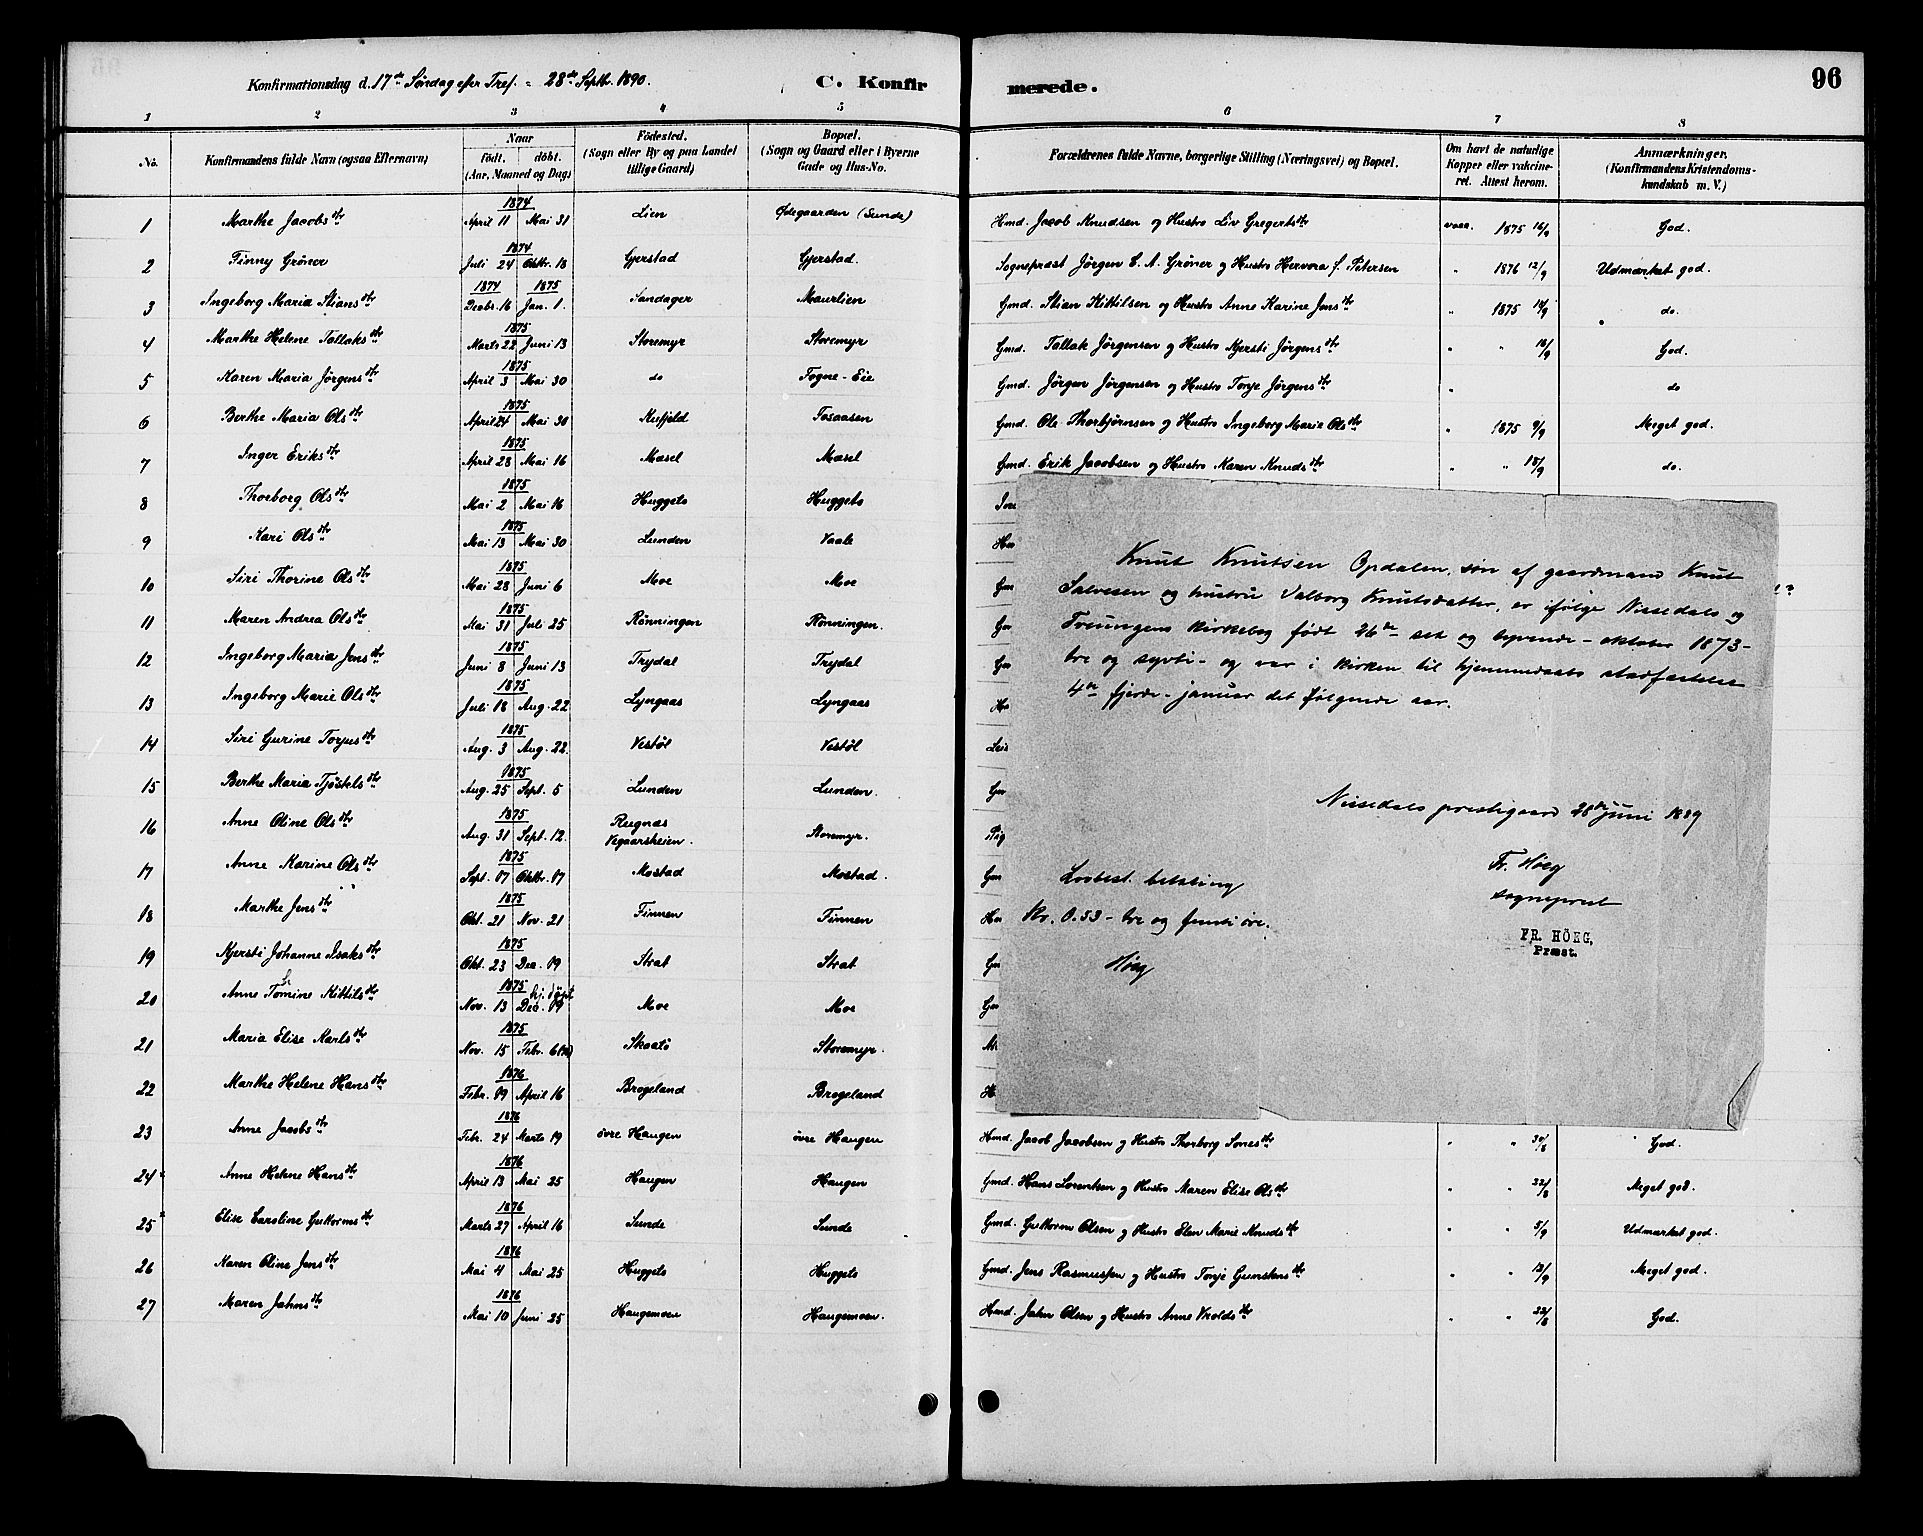 Konfirmationsdag d. 17de Søndag efter Tref. = 28de Septbr. 1890.
C. Konfir
merede.
96
1 2 3 4 5 6 7 8
No. Konfirmandens fulde Navn (ogsaa Efternavn) Naar født. døbt. (Aar, Maaned og Dag) Fødested. (Sogn eller By og paa Landet tillige Gaard) Bopæl. (Sogn og Gaard eller i Byerne Gade og Hus-No. Forældrenes fulde Navne, borgerlige Stilling (Næringsvei) og Bopæl. Om havt de naturlige Kopper eller vakcineret. Attest herom. Anmærkninger. (Konfirmandens Kristendomskundskab m. V.)
1 Marthe Jacobsdtr 1874 April 11 Mai 31 Lien Ødegaarden (Sunde) Hmd. Jacob Knudsen og Hustro Liv Gregertsdtr vacc. 1875 16/9 God.
2 Finny Grøner 1874 Juli 24 Oktbr. 18 Gjerstad Gjerstad. Sognepræst Jørgen C. A. Grøner og Hustro Hervora f. Petersen " 1876 12/9 Udmærket god.
3 Ingeborg Maria Stiansdtr 1874 1875 Decbr. 16 Jan. 1. Sandager Maurlien Gmd. Stian Kittilsen og Hustro Anne Karine Jensdtr " 1875 18/9 do.
4 Marthe Helene Tallaksdtr 1875 Marts 22 Juni 13 Storemyr Storemyr Gmd. Tallak Jørgensen og Hustro Kjersti Jørgensdtr " " 18/9 God.
5 Karen Maria Jørgensdtr 1875 April 3 Mai 30 do Fogne-Eie Gmd. Jørgen Jørgensen og Hustro Tonje Jørgensdtr " do
6 Berthe Maria Olsdtr 1875 April 24 Mai 30 Rufjeld Tosaasen Gmd. Ole Thorbjørnsen og Hustro Ingeborg Marie Olsdtr " 1875 9/9 Meget god.
7 Inger Eriksdtr 1875 April 28 Mai 16 Mæsel Mæsel Gmd. Erik Jacobsen og Hustro Maren Knudsdtr " " 18/9 do.
8 Thorborg Olsdtr 1875 Mai 2 Mai 16 Huggets Huggets
9 Kari Olsdtr 1875 Mai 13 Mai 30 Lunden Vaale
10 Siri Thorine Olsdtr 1875 Mai 28 Juni 6 Moe Moe
11 Maren Andrea Olsdtr 1875 Mai 31 Juli 25 Rønningen Rønningen.
12 Ingeborg Maria Jensdtr 1875 Juni 8 Juni 13 Trydal Trydal
13 Ingeborg Marie Olsdtr 1875 Juli 18 Aug. 22 Lyngaas Lyngaas
14 Siri Gurine Torjusdtr 1875 Aug. 3 Aug. 22. Vestøl Vestøl
15 Berthe Maria Tjøstelsdtr 1875 Aug. 25 Sept. 5 Lunden Lunden.
16 Anne Oline Olsdtr 1875 Aug. 31 Sept. 12. Rugnæs Vegaarsheien. Storemyr.
17 Anne Karine Olsdtr 1875 Sept. 07 Oktbr. 17 Mostad Mostad.
18 Marthe Jensdtr 1875 Okt. 21 Nov. 21 Finnen Finnen
19 Kjersti Johanne Isaksdtr 1875 Okt. 23 Dec. 19 Strat Strat
20 Anne Tomine Kittilsdtr 1875 Nov. 13 hj. døpt Dec. 19 Moe Moe
21 Maria Elise Karlsdtr 1875 Nov. 15 Febr. 6 (76) Skaatö Storemyr.
22 Marthe Helene Hansdtr 1876 Febr. 09 April 16 Brogeland Brogeland
23 Anne Jacobsdtr 1876 Febr. 24 Marts 19 övre Haugen övre Haugen Hmd. Jacob Jacobsen og Hustro Thorborg Sonesdtr " " 30/8 God.
24 Anne Helene Hansdtr 1876 April 13 Mai 25 Haugen Haugen Gmd. Hans Lorentsen og Hustro Maren Elise Olsdtr " " 22/8 Meget god.
25 Elise Caroline Guttormsdtr 1876 Marts 27 April 16 Sunde Sunde Gmd. Guttorm Olsen og Hustro Elen Marie Knudsdtr " " 5/9 Udmærket god.
26 Karen Oline Jensdtr 1876 Mai 4 Mai 25 Huggets Huggets Gmd. Jens Rasmussen og Hustro Tonje Gunstensdtr " " 13/9 Meget god.
27 Maren Jahnsdtr 1876 Mai 10 Juni 25 Haugemoen Haugemoen. Hmd. Jahn Olsen og Hustro Anne Vroldsdtr " " 22/8 God.
Knut Knutsen Opdalen, søn af gaardmand Knut
Salvesen og hustru Valborg Knutsdatter, er ifølge Nissedals og
Treungens kirkebog født 26de sex og tyvende - oktober 1873 -
tre og sytti - og var i kirken til hjemmedaabs stadfæstelse
4de fjerde - januar det følgende aar.
Nissedals prestegaard 28de juni 1889
Fr. Høeg
sogneprest
FR. HÖEG,
Præst.
Lovbest. betaling
Kr. 0.53 - tre og femti öre.
Høeg